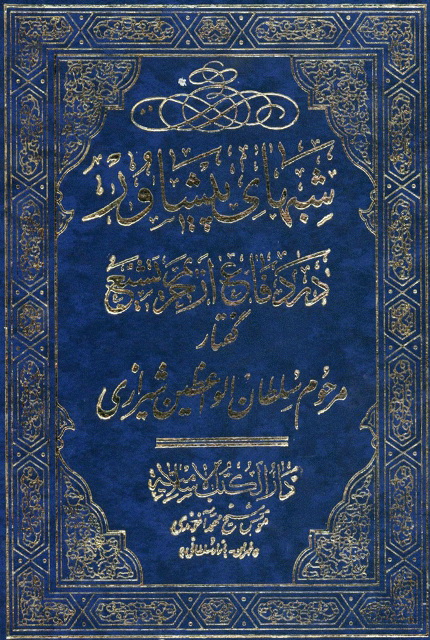 شبهای پیشاور
در دفاع از حریم تشیع
گفتار
مرحوم سلطان الواعظین شیرازی
دار الکتب الاسلامیه
شیخ محمد آخوندی
تهران - بازار سلطانی